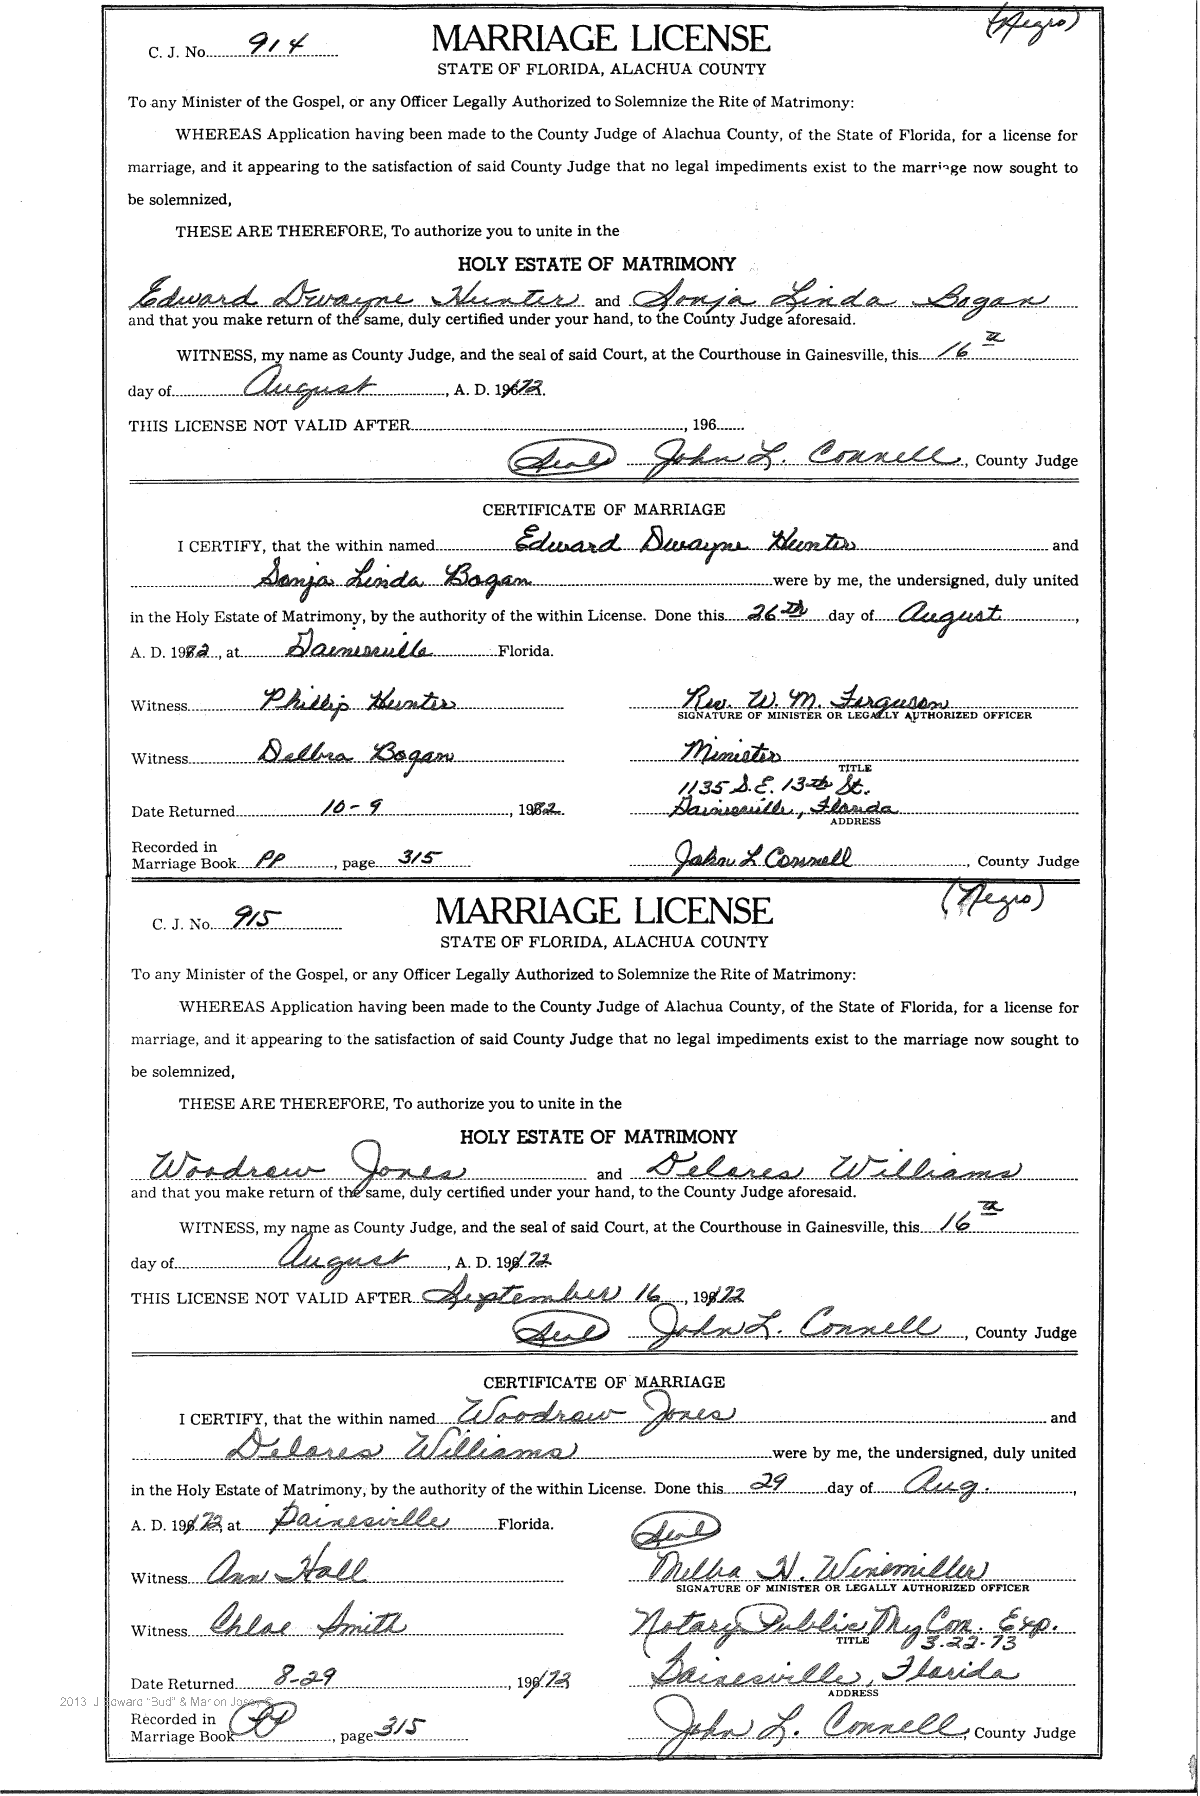 (Negro)
C. J. No. 914
MARRIAGE LICENSE
STATE OF FLORIDA, ALACHUA COUNTY
To any Minister of the Gospel, or any Officer Legally Authorized to Solemnize the Rite of Matrimony:
WHEREAS Application having been made to the County Judge of Alachua County, of the State of Florida, for a license for
marriage, and it appearing to the satisfaction of said County Judge that no legal impediments exist to the marriage now sought to
be solemnized,
THESE ARE THEREFORE, To authorize you to unite in the
HOLY ESTATE OF MATRIMONY
Edward Dwayne Hunter and Sonja Linda Bogan
and that you make return of the same, duly certified under your hand, to the County Judge aforesaid.
WITNESS, my name as County Judge, and the seal of said Court, at the Courthouse in Gainesville, this 16th
day of August, A. D. 1972.
THIS LICENSE NOT VALID AFTER, 196
(Seal) John L. Connell, County Judge
CERTIFICATE OF MARRIAGE
I CERTIFY, that the within named Edward Dwayne Hunter and
Sonja Linda Bogan were by me, the undersigned, duly united
in the Holy Estate of Matrimony, by the authority of the within License. Done this 26th day of August,
A. D. 1972, at Gainesville Florida.
Witness Phillip Hunter Rev. W. M. Ferguson
SIGNATURE OF MINISTER OR LEGALLY AUTHORIZED OFFICER
Witness Delbra Bogan Minister
TITLE
1135 S.E. 13th St.
Date Returned 10-9, 1972. Gainesville, Florida
ADDRESS
Recorded in
Marriage Book PP, page 315 John L Connell, County Judge
(Negro)
C. J. No. 915
MARRIAGE LICENSE
STATE OF FLORIDA, ALACHUA COUNTY
To any Minister of the Gospel, or any Officer Legally Authorized to Solemnize the Rite of Matrimony:
WHEREAS Application having been made to the County Judge of Alachua County, of the State of Florida, for a license for
marriage, and it appearing to the satisfaction of said County Judge that no legal impediments exist to the marriage now sought to
be solemnized,
THESE ARE THEREFORE, To authorize you to unite in the
HOLY ESTATE OF MATRIMONY
Woodrow Jones and Delores Williams
and that you make return of the same, duly certified under your hand, to the County Judge aforesaid.
WITNESS, my name as County Judge, and the seal of said Court, at the Courthouse in Gainesville, this 16th
day of August, A. D. 1972
THIS LICENSE NOT VALID AFTER September 16, 1972
(Seal) John L. Connell, County Judge
CERTIFICATE OF MARRIAGE
I CERTIFY, that the within named Woodrow Jones and
Delores Williams were by me, the undersigned, duly united
in the Holy Estate of Matrimony, by the authority of the within License. Done this 29 day of Aug.,
A. D. 1972 at Gainesville Florida.
(Seal)
Witness Ann Hall Melba H. Winemiller
SIGNATURE OF MINISTER OR LEGALLY AUTHORIZED OFFICER
Witness Chloe Smith Notary Public My Com. Exp.
TITLE 3-22-73
Date Returned 8-29, 1972 Gainesville, Florida
ADDRESS
2013 J Edward "Bud" & Marion
Recorded in
Marriage Book PP, page 315 John L. Connell, County Judge